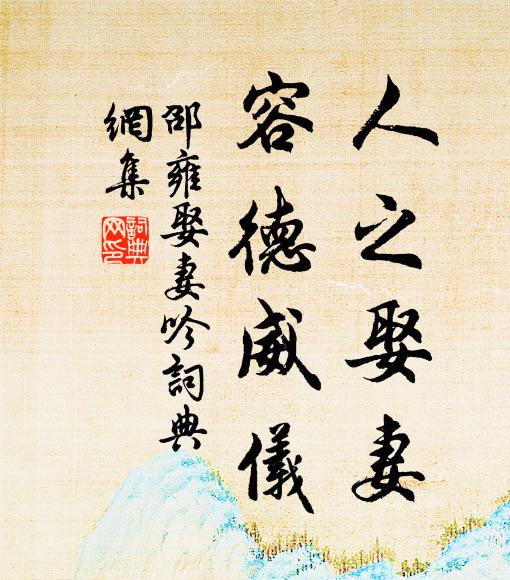 人之娶妻
容德威儀
邵雍娶妻吟詞典
網集
詞典
网印